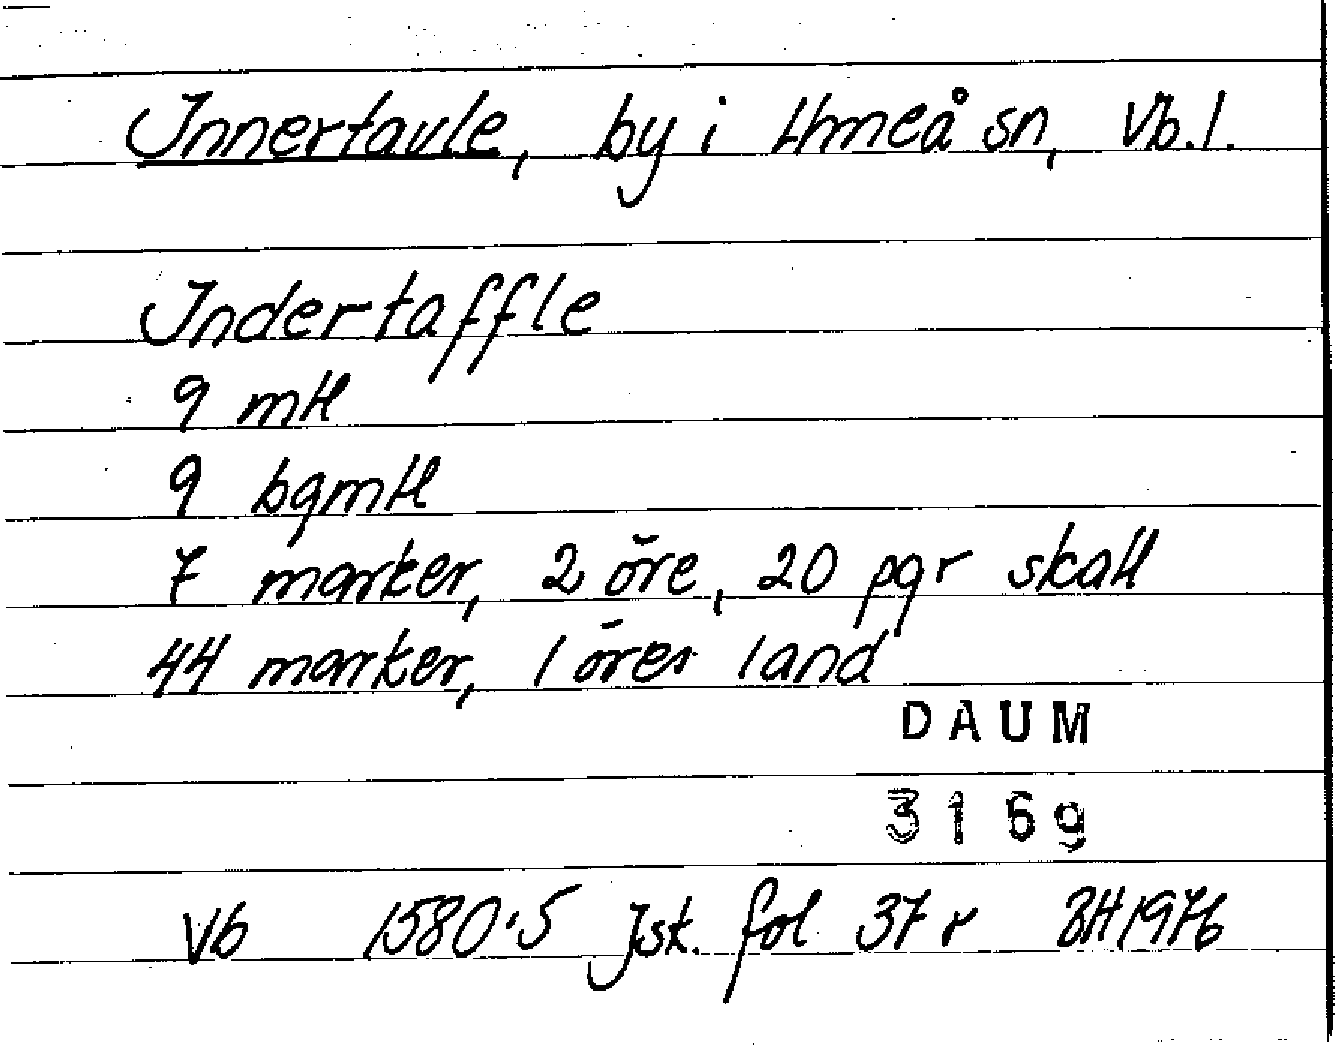 Innertavle, by i Umeå sn, Vb.l.
Indertaffle
9 mtl
9 bgmtl
7 marker, 2 öre, 20 pgr skatt
44 marker, 1 öres land
DAUM
3169
Vb 1580:5 Jsk. fol 37 r BH 1976